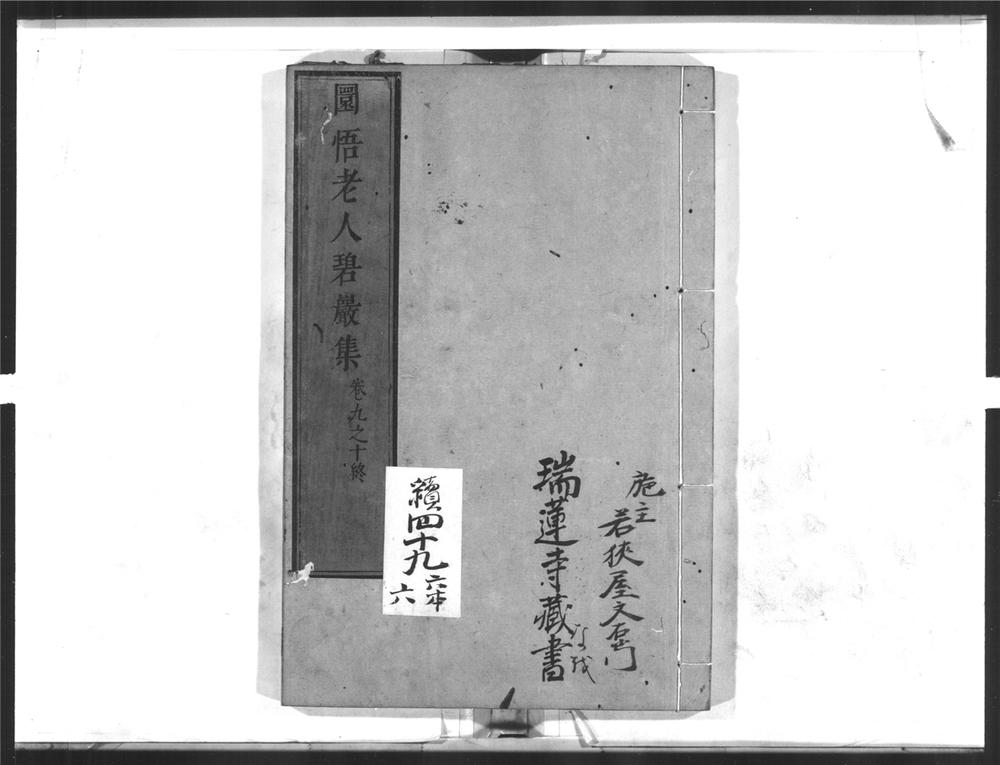 施主
若狹屋文右衛門
瑞蓮寺藏書
圜悟老人碧巖集
卷九之十終
續四十九
六本
六